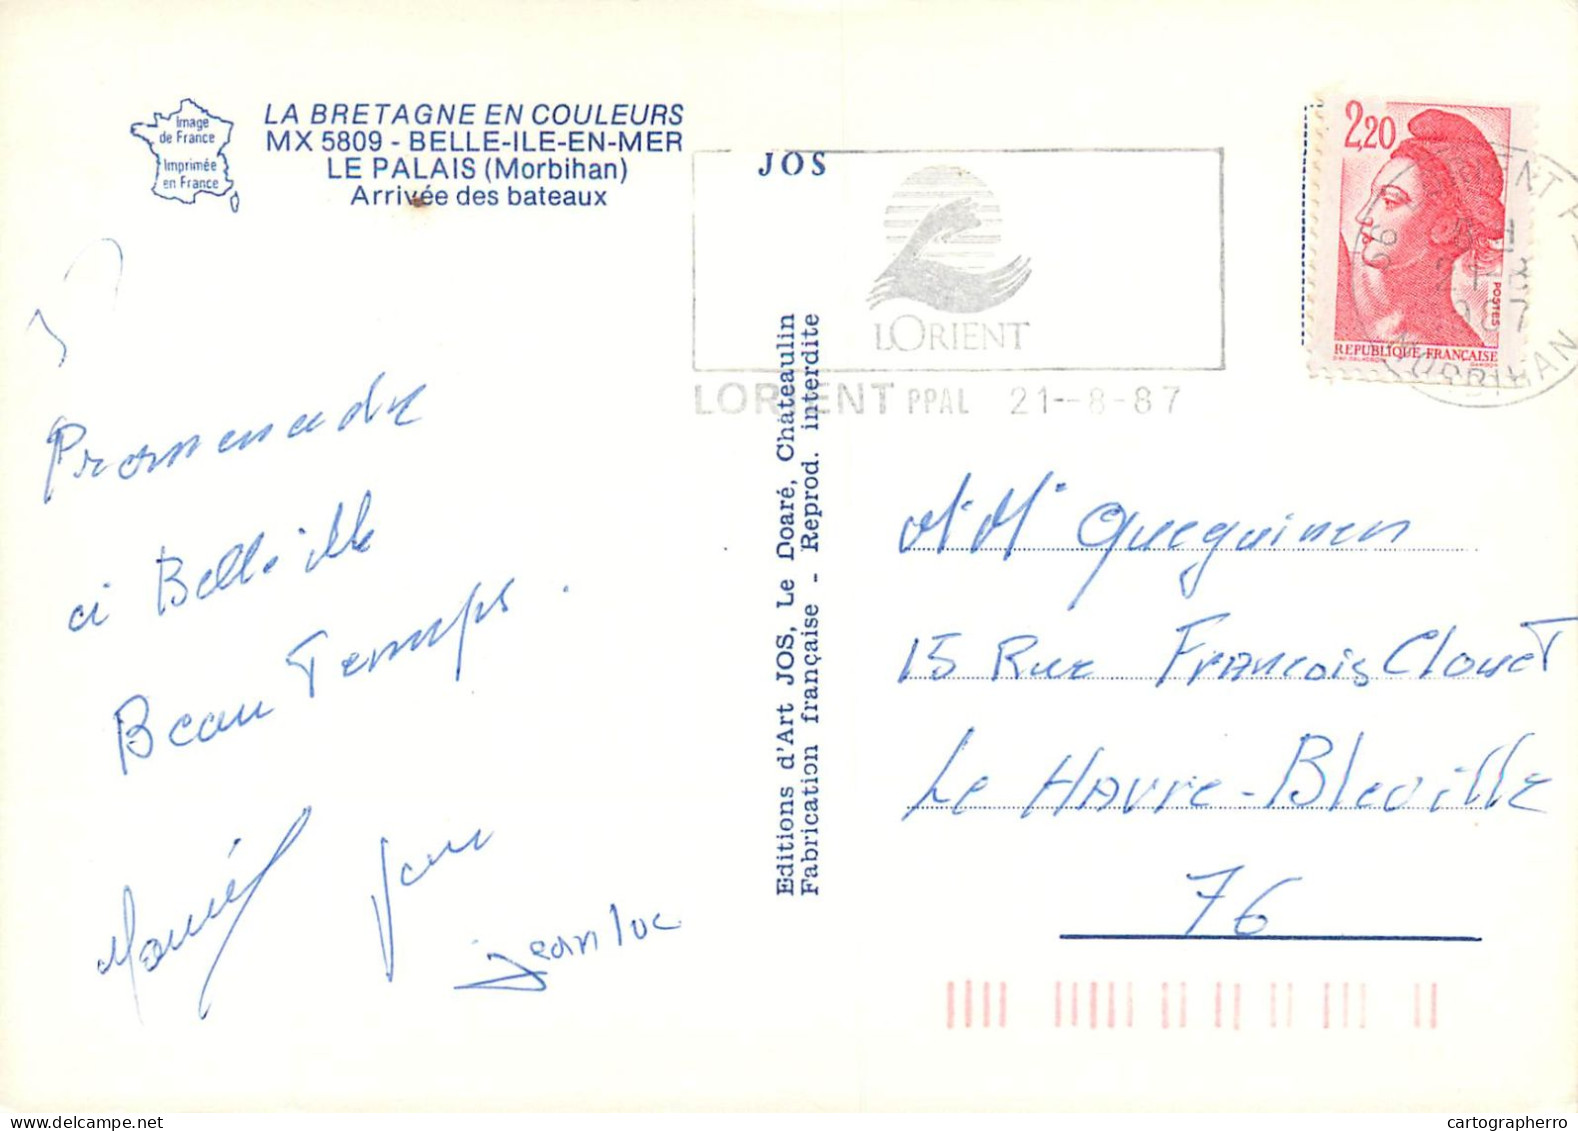 Image
de France
Imprimée
en France
LA BRETAGNE EN COULEURS
MX 5809 - BELLE-ILE-EN-MER
LE PALAIS (Morbihan)
Arrivée des bateaux
Promenade
Belle ille
Beau Temps.
jean luc
JOS
Editions d'Art JOS, Le Doaré, Châteaulin
Fabrication française - Reprod. interdite
LORIENT
LORIENT PPAL 21-8-87
2,20
POSTES
REPUBLIQUE FRANÇAISE
MORBIHAN
Mr Mr Queguinen
15 Rue François Clouet
Le Havre-Bleville
76
cartographerro